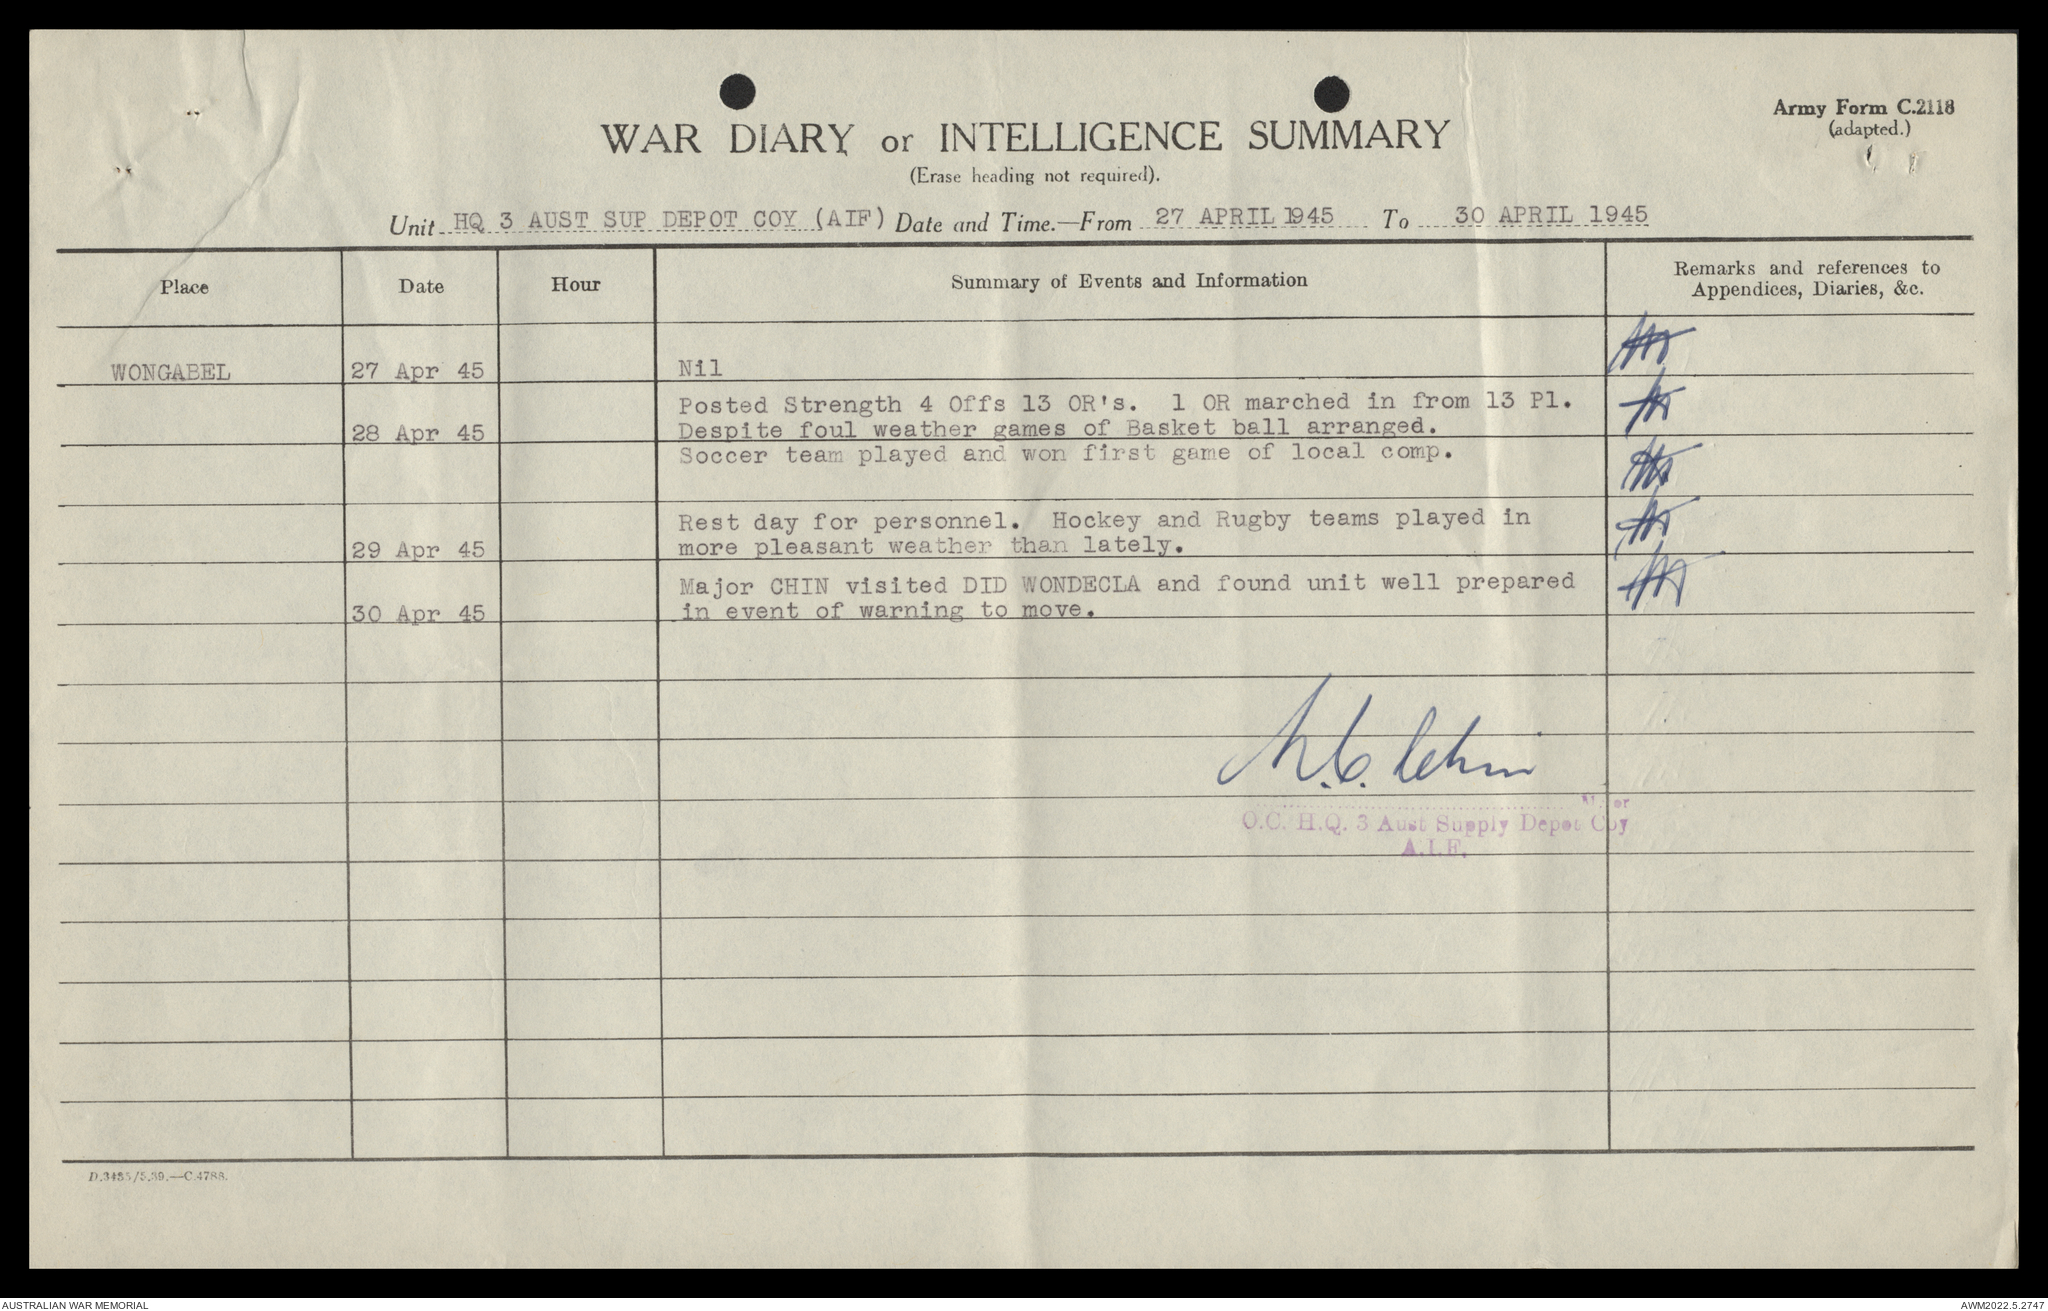 Army Form C.2118
(adapted.)
WAR DIARY or INTELLIGENCE SUMMARY
(Erase heading not required).
Unit HQ 3 AUST SUP DEPOT COY (AIF) Date and Time.—From 27 APRIL 1945 To 30 APRIL 1945
Place Date Hour Summary of Events and Information Remarks and references to
Appendices, Diaries, &c.
WONGABEL 27 Apr 45 Nil
Posted Strength 4 Offs 13 OR's. 1 OR marched in from 13 Pl.
28 Apr 45 Despite foul weather games of Basket ball arranged.
Soccer team played and won first game of local comp.
Rest day for personnel. Hockey and Rugby teams played in
29 Apr 45 more pleasant weather than lately.
Major CHIN visited DID WONDECLA and found unit well prepared
30 Apr 45 in event of warning to move.
Chin
Major
O.C. H.Q. 3 Aust Supply Depot Coy
A.I.F.
D.3483/5.39.—C.4788.
AUSTRALIAN WAR MEMORIAL AWM2022.5.2747